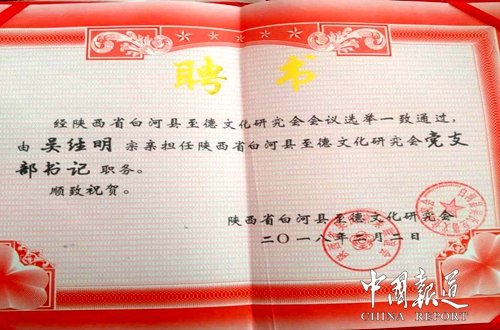 聘书
经陕西省白河县至德文化研究会会议选举一致通过，
由吴经明宗亲担任陕西省白河县至德文化研究会党支
部书记职务。
顺致祝贺。
陕西省白河县至德文化研究会
二〇一八年二月二日
中国报道
CHINA REPORT